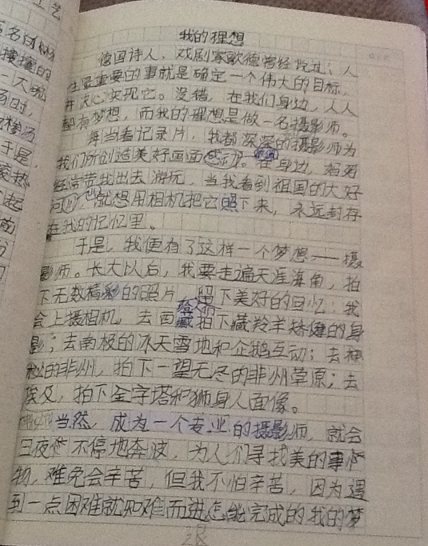 我的理想
德国诗人,戏剧家歌德曾经说过:人
生最重要的事就是确定一个伟大的目标,
并决心实现它。没错,在我们身边,人人
都有梦想,而我的理想是做一名摄影师。
每当看记录片,我都深深的摄影师为
我们所创造美好画面。在身边,
经常带我出去游玩,当我看到祖国的大好
就想用相机把它照下来,永远封存
在我的记忆里。
于是,我便有了这样一个梦想——摄
影师。长大以后,我要走遍天涯海角,拍
下无数精彩的照片,留下美好的回忆:我
会上摄相机,去西藏拍下藏羚羊矫健的身
影;去南极的冰天雪地和企鹅互动;去神
秘的非州,拍下一望无尽的非州草原;去
埃及,拍下金字塔和狮身人面像。
当然,成为一个专业的摄影师,就会
日夜 不停地奔波,为人们寻找美的事
物,难免会辛苦,但我不怕辛苦,因为遇
到一点困难就知难而进怎能完成的我的梦